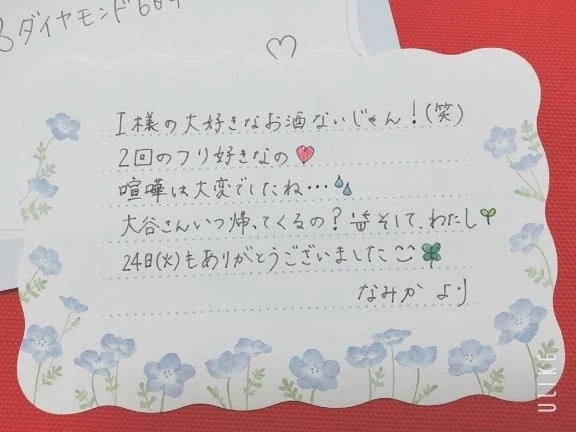 ダイヤモンド
I様の大好きなお酒ないじゃん！(笑)
2回のフリ好きなの
喧嘩は大変でしたね…
大谷さんいつ帰ってくるの？そして、わたし
24日(火)もありがとうございました
なみか より
ULIKE